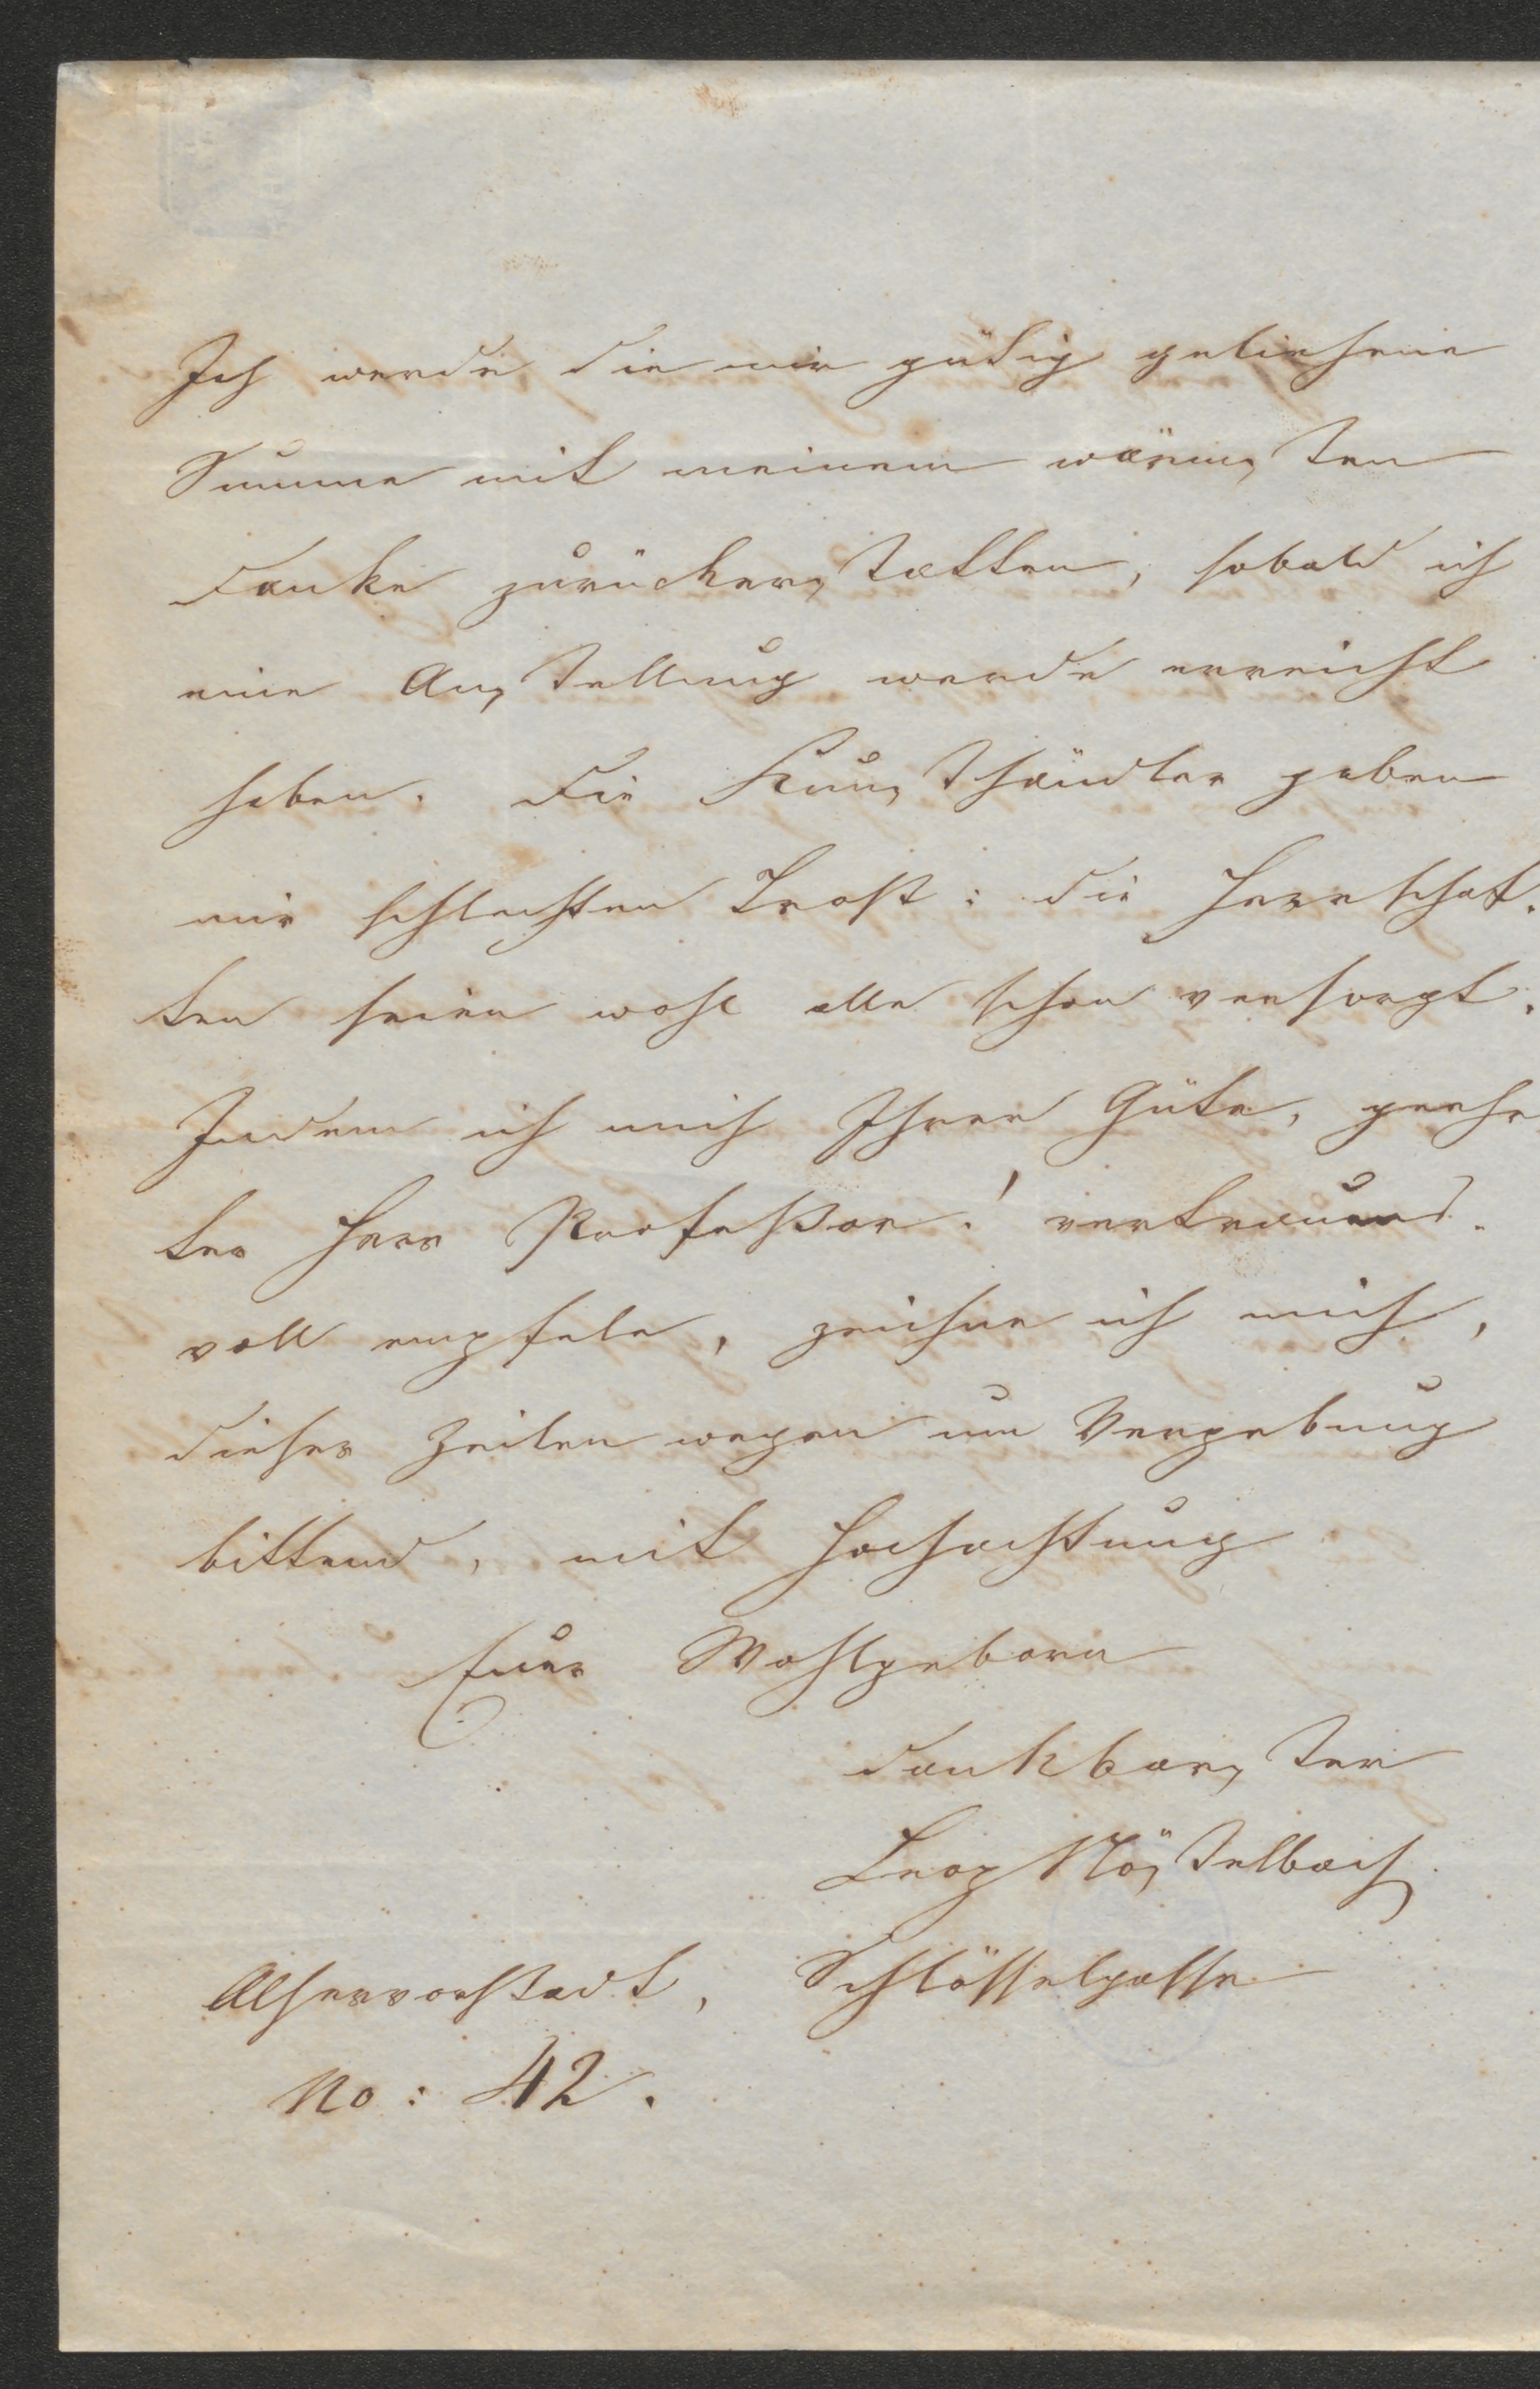 Ich werde die mir gütig geliehene
Summe mit meinem wärmsten
Danke zurückerstatten, sobald ich
eine Anstellung werde erreicht
haben. Die Kunsthändler gaben
mir schlechten Trost: die Herrschaf-
ten seien wohl alle schon versorgt.
Indem ich mich Ihrer Güte, geehr
ter Herr Profeßor! vertrauens-
voll empfele, zeichne ich mich,
dieser Zeilen wegen um Vergebung
bittend, mit Hochachtung
Euer Wohlgeborn
dankbarster
Leop Nöstelbach
Alservorstadt, Schlösselgasse
No: 42.